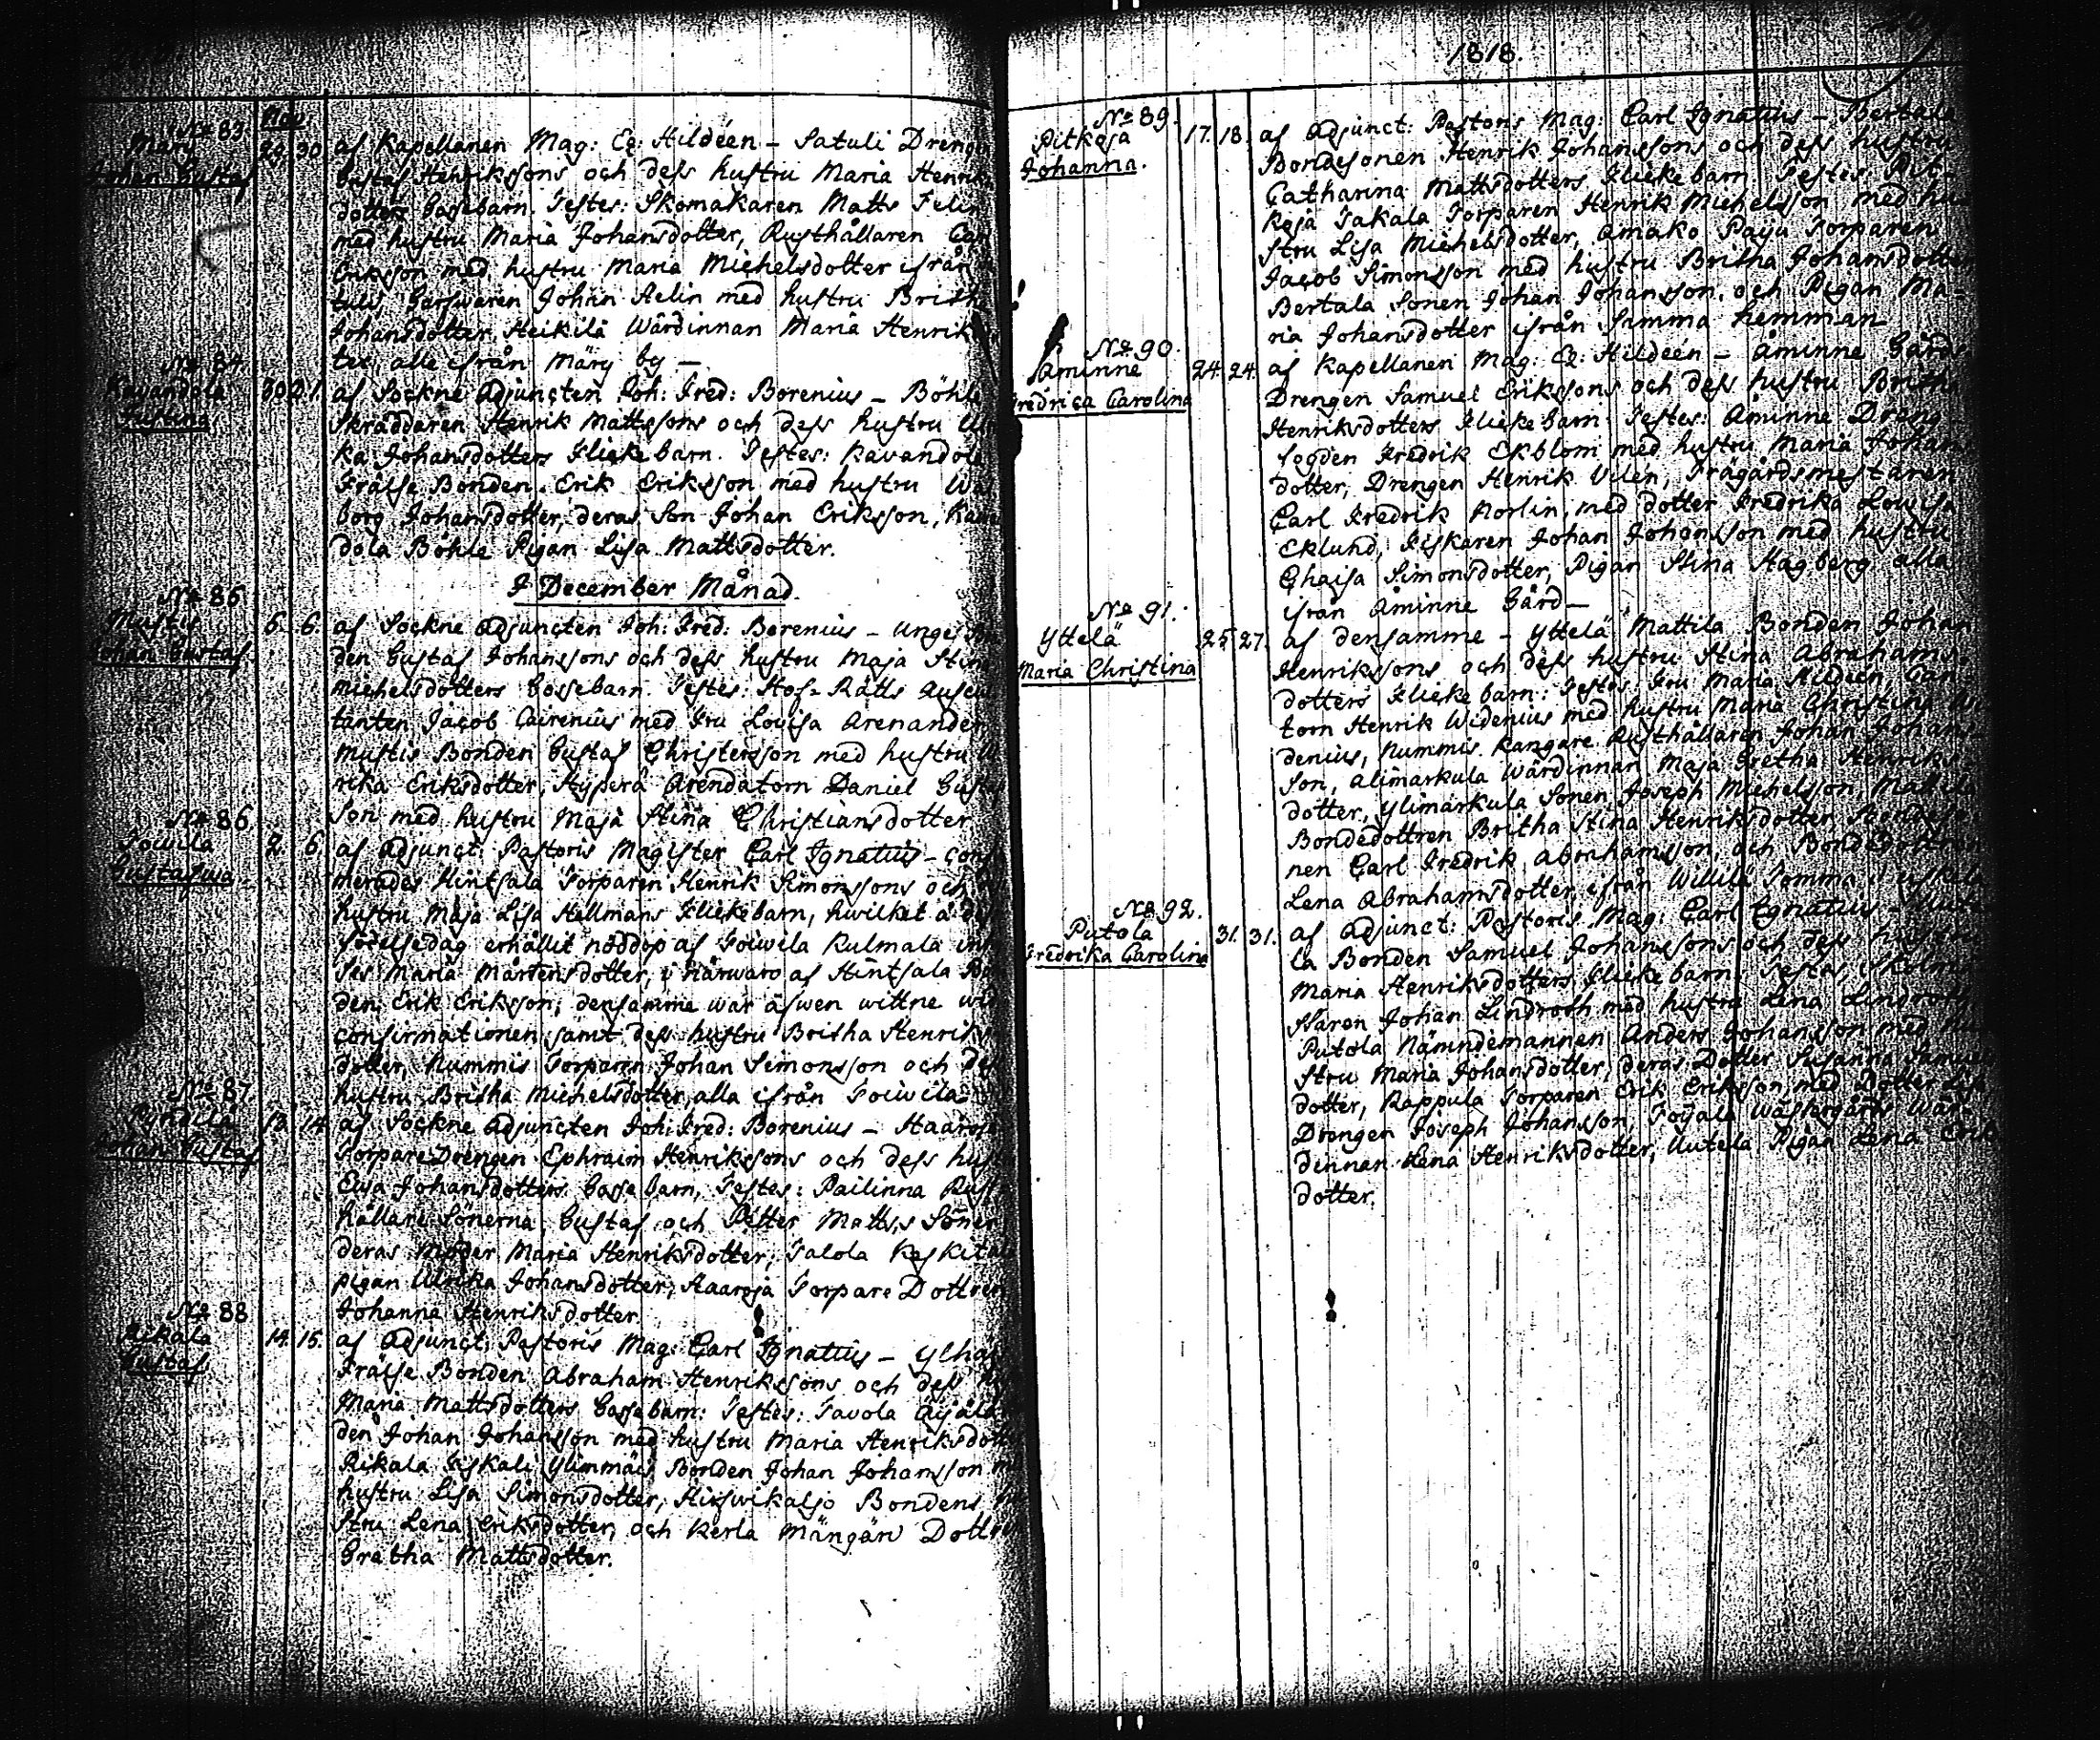 1818.
Nov.
No 83.
Märy 29. 30. af Kapellanen Mag: Er: Hildéen – Satuli Drengen
Johan Gustaf
Gustaf Henrikssons och dess hustru Maria Henriks
dotters Gossebarn. Testes: Skomakaren Matts Felin
med hustru Maria Johansdotter, Rusthållaren Carl
Eriksson med hustru Maria Michelsdotter ifrån
tuli, Garfwaren Johan Aelin med hustru Britha
Johansdotter, Heikilä Wärdinnan Maria Henriks
ter, alla ifrån Märy by –
No 84.
Kavandola 30. 2/1. af Sockne Adjuncten Joh: Fred: Borenius – Böhle
Justina
Skräddaren Henrik Mattssons och dess hustru Ul
ka Johansdotters Flickebarn. Testes: Kavandola
Frälse Bonden Erik Eriksson med hustru Wal
borg Johansdotter, deras Son Johan Eriksson, Kavan
dola Böhle Pigan Lisa Mattsdotter.
I December Månad.
No 85
Mustis 6. 6. af Sockne Adjuncten Joh: Fred: Borenius – Unge Bon
Johan Gustaf
den Gustaf Johanssons och dess hustru Maja Stina
Michelsdotters Gossebarn. Testes: Hof-Rätts Auscul
tanten Jacob Cairenius med Fru Lovisa Arenander
Mustis Bonden Gustaf Christersson med hustru Ul
rika Eriksdotter, Hyperä Arendatorn Daniel Gustaf
Son med hustru Maja Stina Christiansdotter
No 86.
Toiwila 2. 6. af Adjunct: Pastoris Magister Carl Ignatius – Con
Gustafwa
merades Hintsala Torparen Henrik Simonssons och
hustru Maja Lisa Hellmans Flickebarn, hwilket å dess
födelsedag erhållit nöddop af Toiwila Kulmala
ses Maria Mårtensdotter, i närwaro af Hintsala Bon
den Erik Eriksson; densamme war äfwen wittne wid
Confirmationen samt dess hustru Britha Henriks
dotter, Nummis Torparen Johan Simonsson och dess
hustru Britha Michelsdotter, alla ifrån Toiwila
No 87.
Pyndilä 13. 14. af Sockne Adjuncten Joh: Fred: Borenius – Haaroja
Johan Gustaf
Torpare Drengen Ephraim Henrikssons och dess hustru
Ewa Johansdotters Gossebarn, Testes: Pailinna Rust
hållare Sönerna Gustaf och Petter Matts Söner
deras Moder Maria Henriksdotter, Talola Keskitalo
pigan Ulrika Johansdotter, Haaroja Torpare Dottren
Johanna Henriksdotter
No 88
Rikala 14. 15. af Adjunct: Pastoris Mag: Carl Ignatius – Ylhäis
Gustaf.
Frälse Bonden Abraham Henrikssons och dess
Maria Mattsdotters Gossebarn: Testes: Tavola Äijälä
den Johan Johansson med hustru Maria Henriksdotter
Rikala Iskali Ylimmäis Bonden Johan Johansson
hustru Lisa Simonsdotter, Hirfwikaljo Bondens hu
stru Lena Eriksdotter, och Kerla Mängän Dottren
Gretha Mattsdotter.
No 89.
Pitkoja 17. 18. af Adjunct: Pastoris Mag: Carl Ignatius – Bertala
Johanna.
Bondesonen Henrik Johanssons och dess hustru
Catharina Mattsdotters Flickebarn. Testes: Pit-
koja Takala Torparen Henrik Michelsson med hu-
stru Lisa Michelsdotter, Amako Paiju Torparen
Jacob Simonsson med hustru Britha Johansdotter
Bertala Sonen Johan Johansson, och Pigan Ma-
ria Johansdotter ifrån Samma hemman
No 90.
Åminne 24. 24. af Kapellanen Mag: Er: Hildéen – Åminne Gårds
Fredrica Carolina
Drengen Samuel Erikssons och dess hustru Britha
Henriksdotters Flickebarn Testes: Åminne Dreng
fogden Fredrik Ekblom med hustru Maria Johans
dotter, Drengen Henrik Vilén, Trägårdsmestaren
Carl Fredrik Norlin, med dotter Fredrika Lowisa
Eklund, Fiskaren Johan Johansson med hustru
Chaisa Simonsdotter, Pigan Stina Hagberg alla
ifrån Åminne Gård –
No 91.
Yttelä 25. 27. af densamme – Yttelä Mattila Bonden Johan
Maria Christina
Henrikssons och dess hustru Stina Abrahams-
dotters Flickebarn: Testes: Fru Maria Hildéen, Can
torn Henrik Widenius med hustru Maria Christina Wi
denius, Nummis Kangare Rusthållaren Johan Johans-
son, Alimarkula Wärdinnan Maja Gretha Henriks
dotter, Ylimarkula Sonen Joseph Michelsson, Mattila
Bondedottren Britha Stina Henriksdotter, Bondeso
nen Carl Fredrik Abrahamsson, och Bondedottren
Lena Abrahamsdotter, ifrån Willilä Tomma i uskela
No 92.
Putola 31. 31. af Adjunct: Pastoris Mag: Carl Ignatius – Uute
Fredrika Carolina
la Bonden Samuel Johanssons och dess hustru
Maria Henriksdotters Flickebarn. Testes, Skolmä
staren Johan Lindroth med hustru Lena Lindroth
Putola Nämndemannen Anders Johansson med hu
stru Maria Johansdotter, deras Dotter Susanna Samuels
dotter, Rappula Torparen Erik Eriksson med Dotter Lisa
Drengen Joseph Johansson, Toijala Wästergårds Wär-
dinnan Lena Henriksdotter, Uutela Pigan Lena Eriks
dotter.